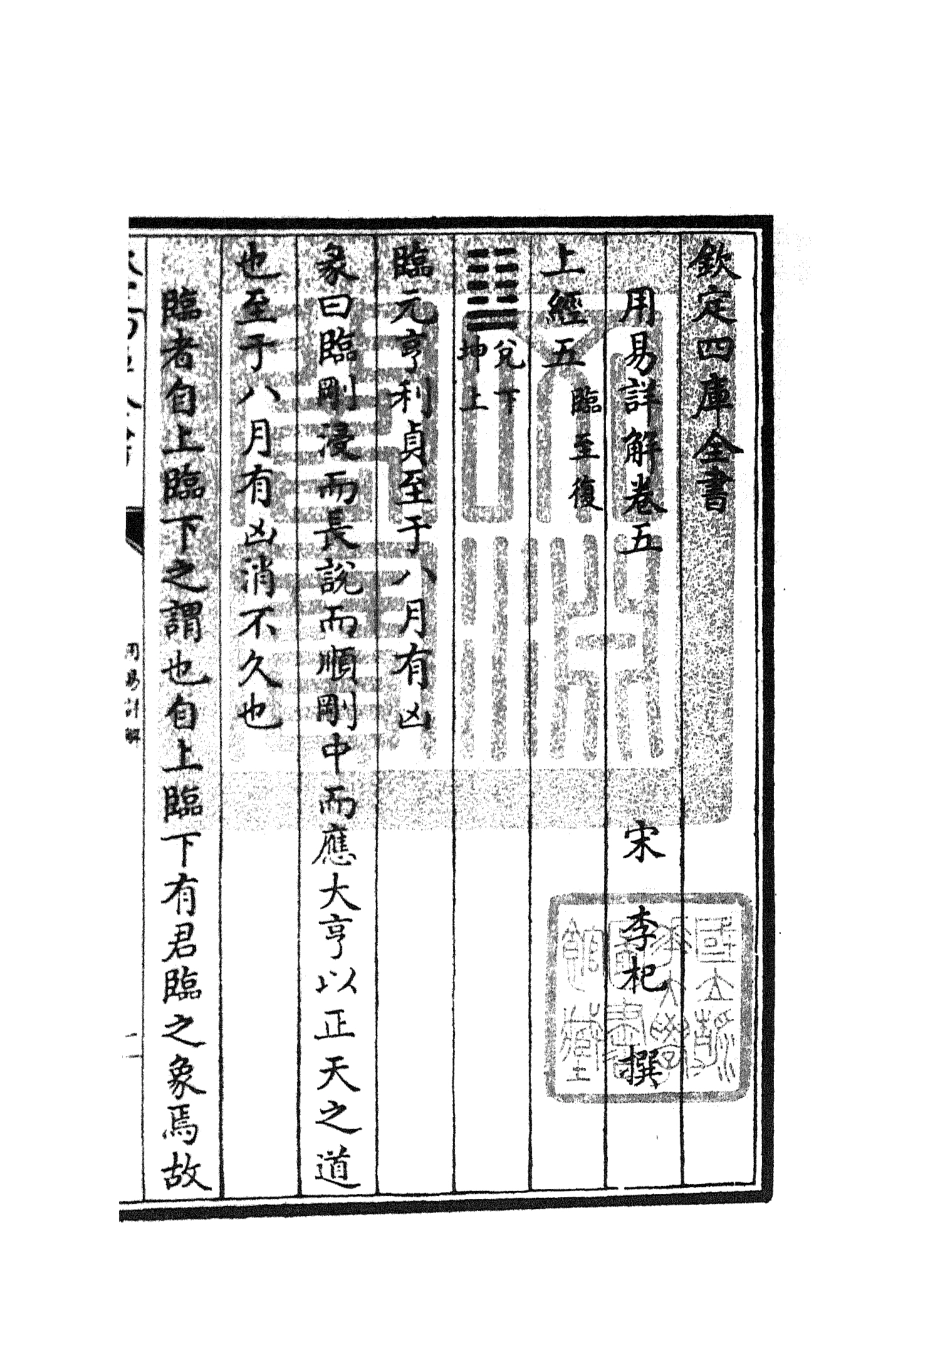 欽定四庫全書
用易詳解卷五
宋 李杞 撰
上經五 臨至復
䷒ 兌下
坤上
臨元亨利貞至于八月有凶
彖曰臨剛浸而長說而順剛中而應大亨以正天之道
也至于八月有凶消不久也
臨者自上臨下之謂也自上臨下有君臨之象焉故
用易詳解